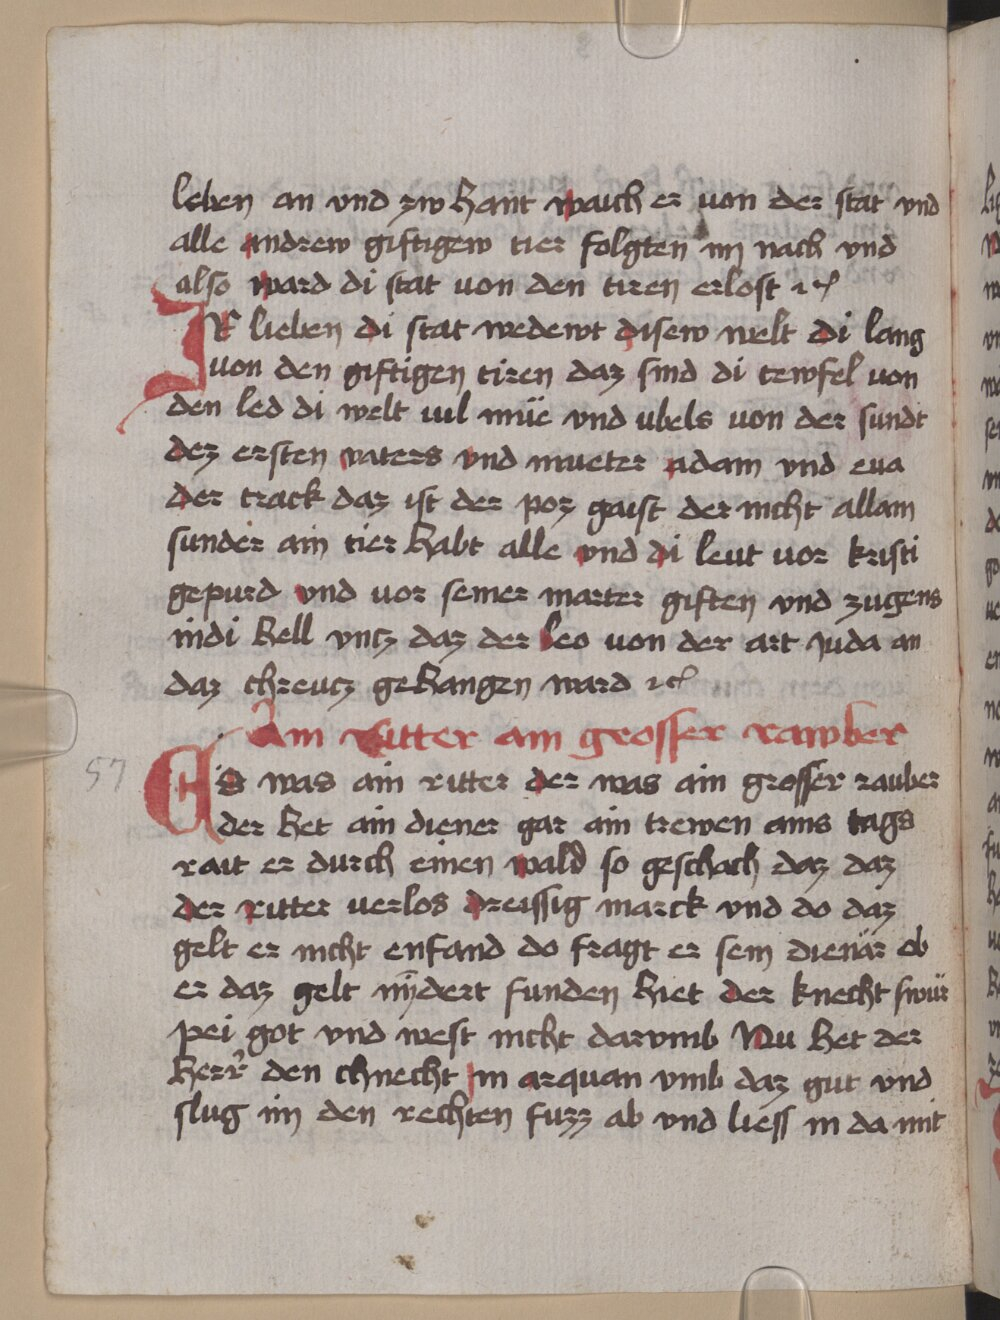 leben an vnd zw hant waich er von der stat vnd
alle andrew giftigew tier folgten im nach vnd
also ward di stat von den tiren erlost etc
Ir lieben di stat wedewt disew welt di lang
von den giftigen tiren daz sind di tewfel von
den led di welt vil müe vnd vbels von der sundt
dez ersten vaters vnd mueter adam vnd eua
der track daz ist der poz gaist der nicht allain
sunder ain tier habt alle vnd di leut vor kristi
gepurd vnd vor seiner marter giften vnd zugens
in di hell vntz daz der leo von der art Juda an
daz chreutz gehangen ward etc
Ain ritter ain grosser rawber
57
Es was ain ritter der was ain grosser rauber
der het ain diener gar ain trewen ains tags
rait er durch einen wald so geschach daz daz
der ritter verlos dreissig marck vnd do daz
gelt er nicht enfand do fragt er sein dienär ob
er daz gelt nÿdert funden hiet der knecht swür
pei got vnd west nicht darvmb Nu het der
herr den chnecht in arquan vmb daz gut vnd
slug im den rechten fuzz ab vnd liess in da mit